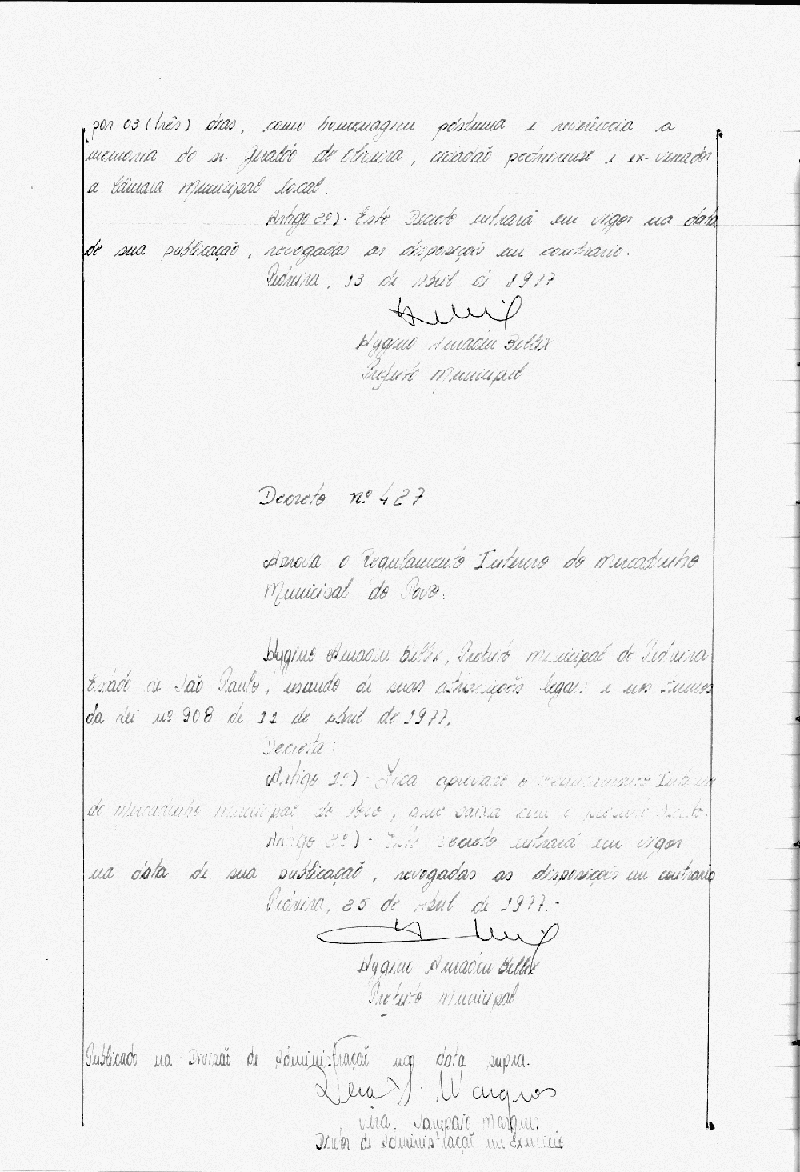 por 03 (três) dias, como homenagem póstuma e reverência a
memoria do sr. de Oliveira, cidadão e ex-vereador
a Câmara Municipal local.
Artigo 2º)- Este Decreto entrará em vigor na data
de sua publicação, revogadas as disposição em contrario.
13 de Abril de 1977
Hygino Amadeu
Prefeito Municipal
Decreto nº 427
Aprova o Regulamento Interno do Mercadinho
Municipal do Povo.
Hygino Amadeu Prefeito Municipal de
Estado de São Paulo, usando de suas atribuições legais e nos termos
da Lei nº 908 de 11 de Abril de 1977,
Decreta:
Artigo 1º)- Fica aprovado o Regulamento Interno
do Mercadinho Municipal do Povo, que baixa com o presente Decreto.
Artigo 2º)- Este Decreto entrará em vigor
na data de sua publicação, revogadas as disposição em contrario
25 de Abril de 1977.-
Hygino Amadeu
Prefeito Municipal
Publicado na Divisão de Administração na data supra.
Vera Sampaio Marques
Diretor de Administração em Exercício